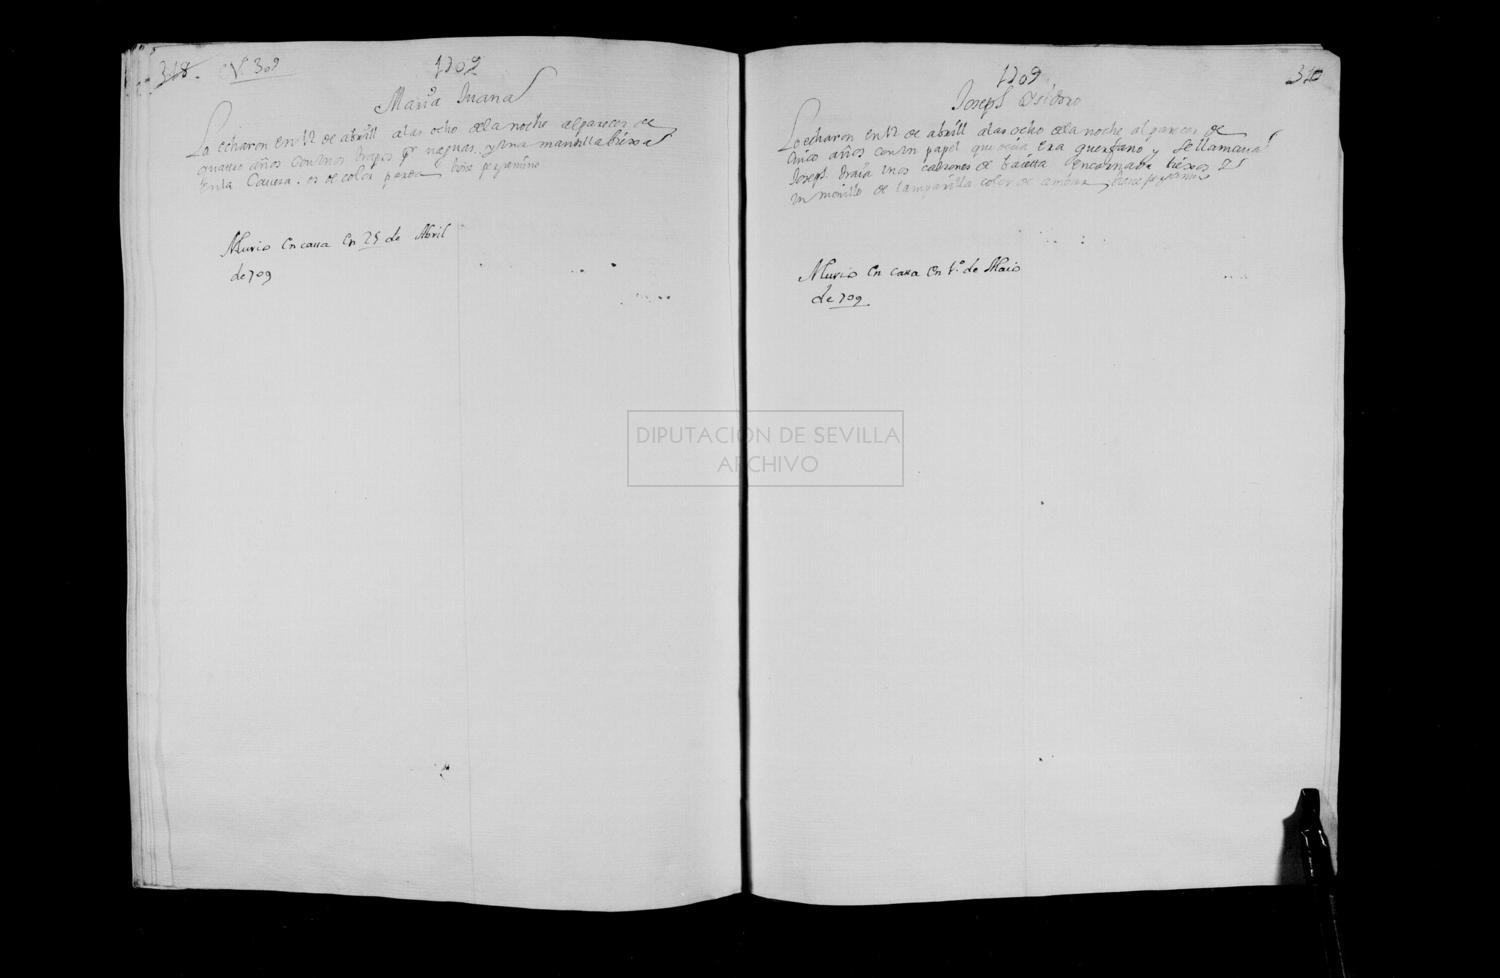 318. Nº 309
1709
Maria Juana
La echaron en 12 de abrill a las ocho de la noche al parecer de
quatro años con unos trapos por naguas, y una mantilla
en la Caveza. es de color parda
Murio en cassa en 25 de Abril
de 709
1709
310
Joseph Ysidoro
Lo echaron en 12 de abrill a las ocho de la noche al parecer de
cinco años con un papel que decia era guerfano y se llamava
Joseph traia unos calsones de baieta encarnada
un monillo de lamparilla color de ambar
Murio en cassa en 1º de Maio
de 709
DIPUTACIÓN DE SEVILLA
ARCHIVO